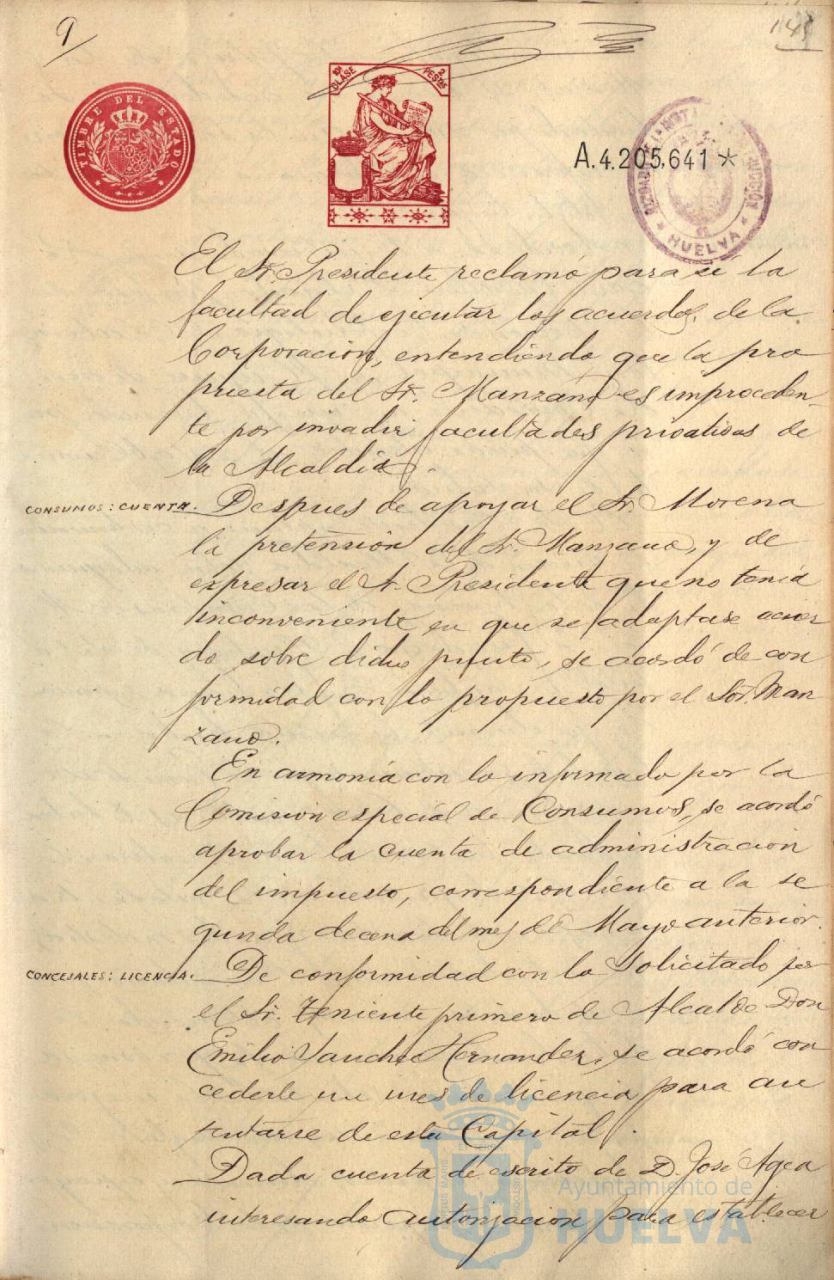 9
145
TIMBRE DEL ESTADO
10ª CLASE
2 PESETAS
A.4.205,641 *
JUZGADO DE 1ª INST
HUELVA
El Sr. Presidente reclamó para sí la
facultad de ejecutar los acuerdos de la
Corporación, entendiendo que la pro
puesta del Sr. Manzano es improceden-
te por invadir facultades privativas de
la Alcaldía.
CONSUMOS: CUENTA.
Despues de apoyar el Sr. Morena
la pretensión del Sr. Manzano, y de
expresar el Sr. Presidente que no tenía
inconveniente en que se adaptase acuer
do sobre dicho punto, se acordó de con
formidad con lo propuesto por el Sor. Man
zano.
En armonía con lo informado por la
Comisión especial de Consumos, se acordó
aprobar la cuenta de administracion
del impuesto, correspondiente a la se
gunda decena del mes de Mayo anterior.
CONCEJALES: LICENCIA.
De conformidad con lo solicitado por
el Sr. Teniente primero de Alcalde Don
Emilio Sanchez Hernandez, se acordó con
cederle un mes de licencia para au
sentarse de esta Capital.
Dada cuenta de escrito de D. José Agea
interesando autorizacion para establecer
Ayuntamiento de
HUELVA